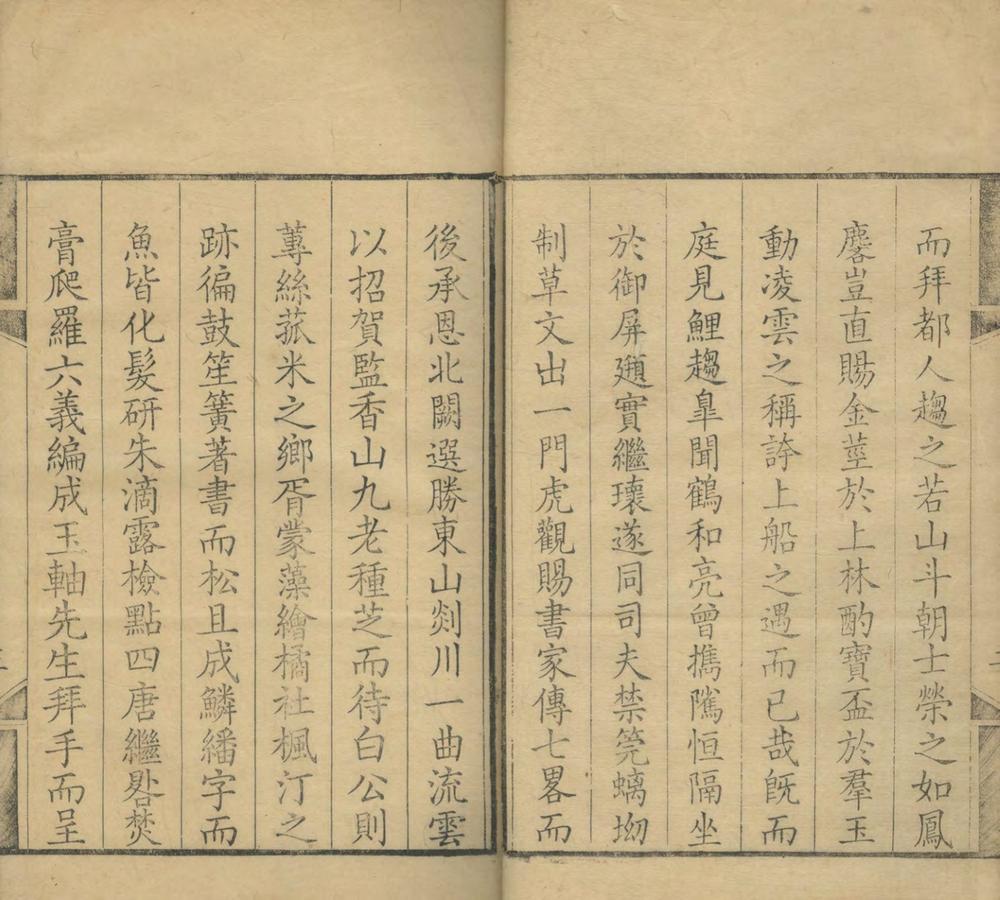 而拜都人趨之若山斗朝士榮之如鳳
麐豈直賜金莖於上林酌寶盃於羣玉
動凌雲之稱誇上船之遇而已哉旣而
庭見鯉趨臯聞鶴和亮曾攜隲恒隔坐
於御屏頲實繼瓌遂同司夫禁筦螭坳
制草文出一門虎觀賜書家傳七畧而
後承恩北闕選勝東山剡川一曲流雲
以招賀監香山九老種芝而待白公則
蓴絲菰米之鄉胥蒙藻繪橘社楓汀之
跡徧鼓笙簧著書而松且成鱗繙字而
魚皆化髮研朱滴露檢點四唐繼晷焚
膏爬羅六義編成玉軸先生拜手而呈